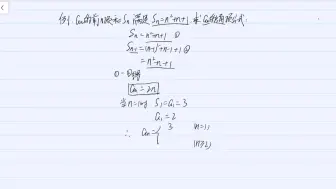 例1: {an}的前n项和Sn满足 Sn=n²+n+1, 求{an}的通项公式.
Sn=n²+n+1 ①
Sn-1=(n-1)²+n-1+1 ②
=n²-n+1
①-②得
an=2n
当n=1时 S1=a1=3
a1=2
∴ an={ 3 (n=1),
(n≥2)